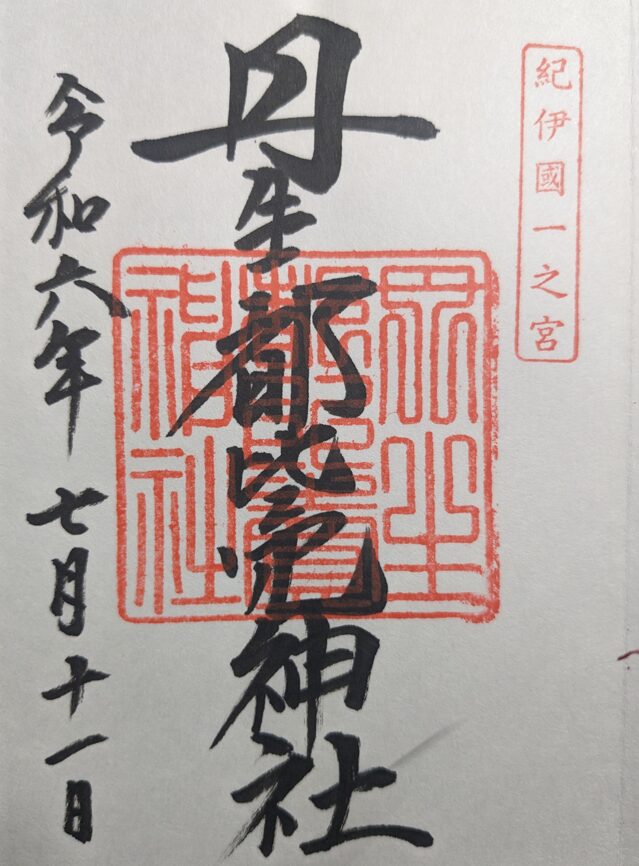 紀伊國一之宮
丹生都比売神社
丹生
都比賣
神社
令和六年七月十一日